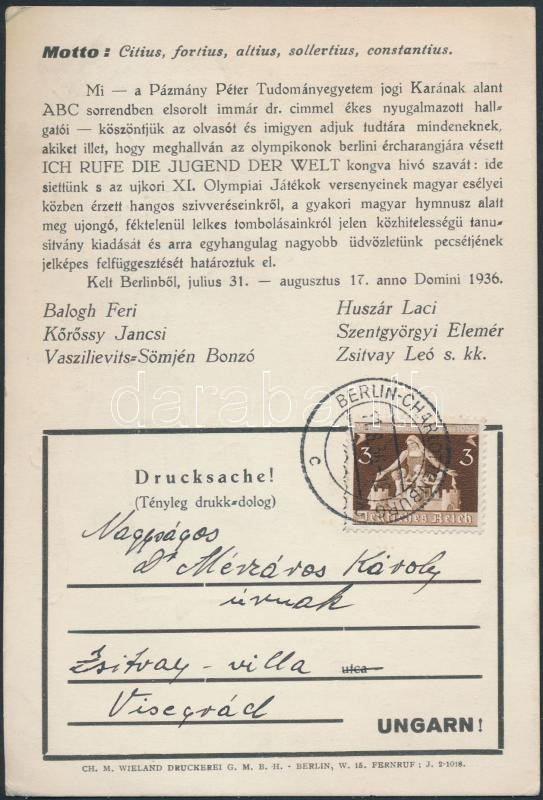 Motto: Citius, fortius, altius, sollertius, constantius.
Mi — a Pázmány Péter Tudományegyetem jogi Karának alant
ABC sorrendben elsorolt immár dr. cimmel ékes nyugalmazott hall-
gatói — köszöntjük az olvasót és imigyen adjuk tudtára mindeneknek,
akiket illet, hogy meghallván az olympikonok berlini ércharangjára vésett
ICH RUFE DIE JUGEND DER WELT kongva hivó szavát: ide
siettünk s az ujkori XI. Olympiai Játékok versenyeinek magyar esélyei
közben érzett hangos szivveréseinkről, a gyakori magyar hymnusz alatt
meg ujongó, féktelenül lelkes tombolásainkról jelen közhitelességü tanu-
sitvány kiadását és arra egyhangulag nagyobb üdvözletünk pecsétjének
jelképes felfüggesztését határoztuk el.
Kelt Berlinből, julius 31. — augusztus 17. anno Domini 1936.
Balogh Feri Huszár Laci
Kőrőssy Jancsi Szentgyörgyi Elemér
Vaszilievits-Sömjén Bonzó Zsitvay Leó s. kk.
darabanth
BERLIN-CHARLOTTENBURG
c
3 3
Deutsches Reich
Drucksache!
(Tényleg drukk-dolog)
Nagyságos
Dr Mészáros Károly
úrnak
Zsitvay - villa utca
Visegrád
UNGARN!
CH. M. WIELAND DRUCKEREI G. M. B. H. - BERLIN, W. 15. FERNRUF: J. 2-1018.